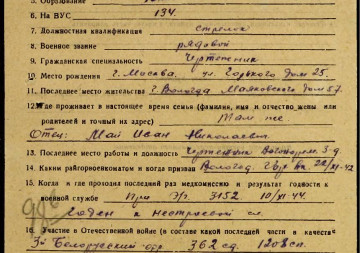 5. Образование
6. На ВУС 134.
7. Должностная квалификация стрелок
8. Военное звание рядовой
9. Гражданская специальность Чертежник
10. Место рождения г. Москва, ул. Горького дом 25.
11. Последнее место жительства г. Вологда Маяковского дом 57.
12. Где проживает в настоящее время семья (фамилия, имя и отчество жены или
родителей и точный адрес) Там же
Отец: Май Иван Николаевич
13. Последнее место работы и должность Чертежник
14. Каким райгорвоенкоматом и когда призван Вологод.
15. Когда и где проходил последний раз медкомиссию и результат годности к
военной службе При ЭГ 3152 10/VII-44.
Годен к нестроевой сл.
16. Участие в Отечественной войне (в составе какой последней части и в качестве
3й Белорусский фр. 362 сд. 1208 сп.